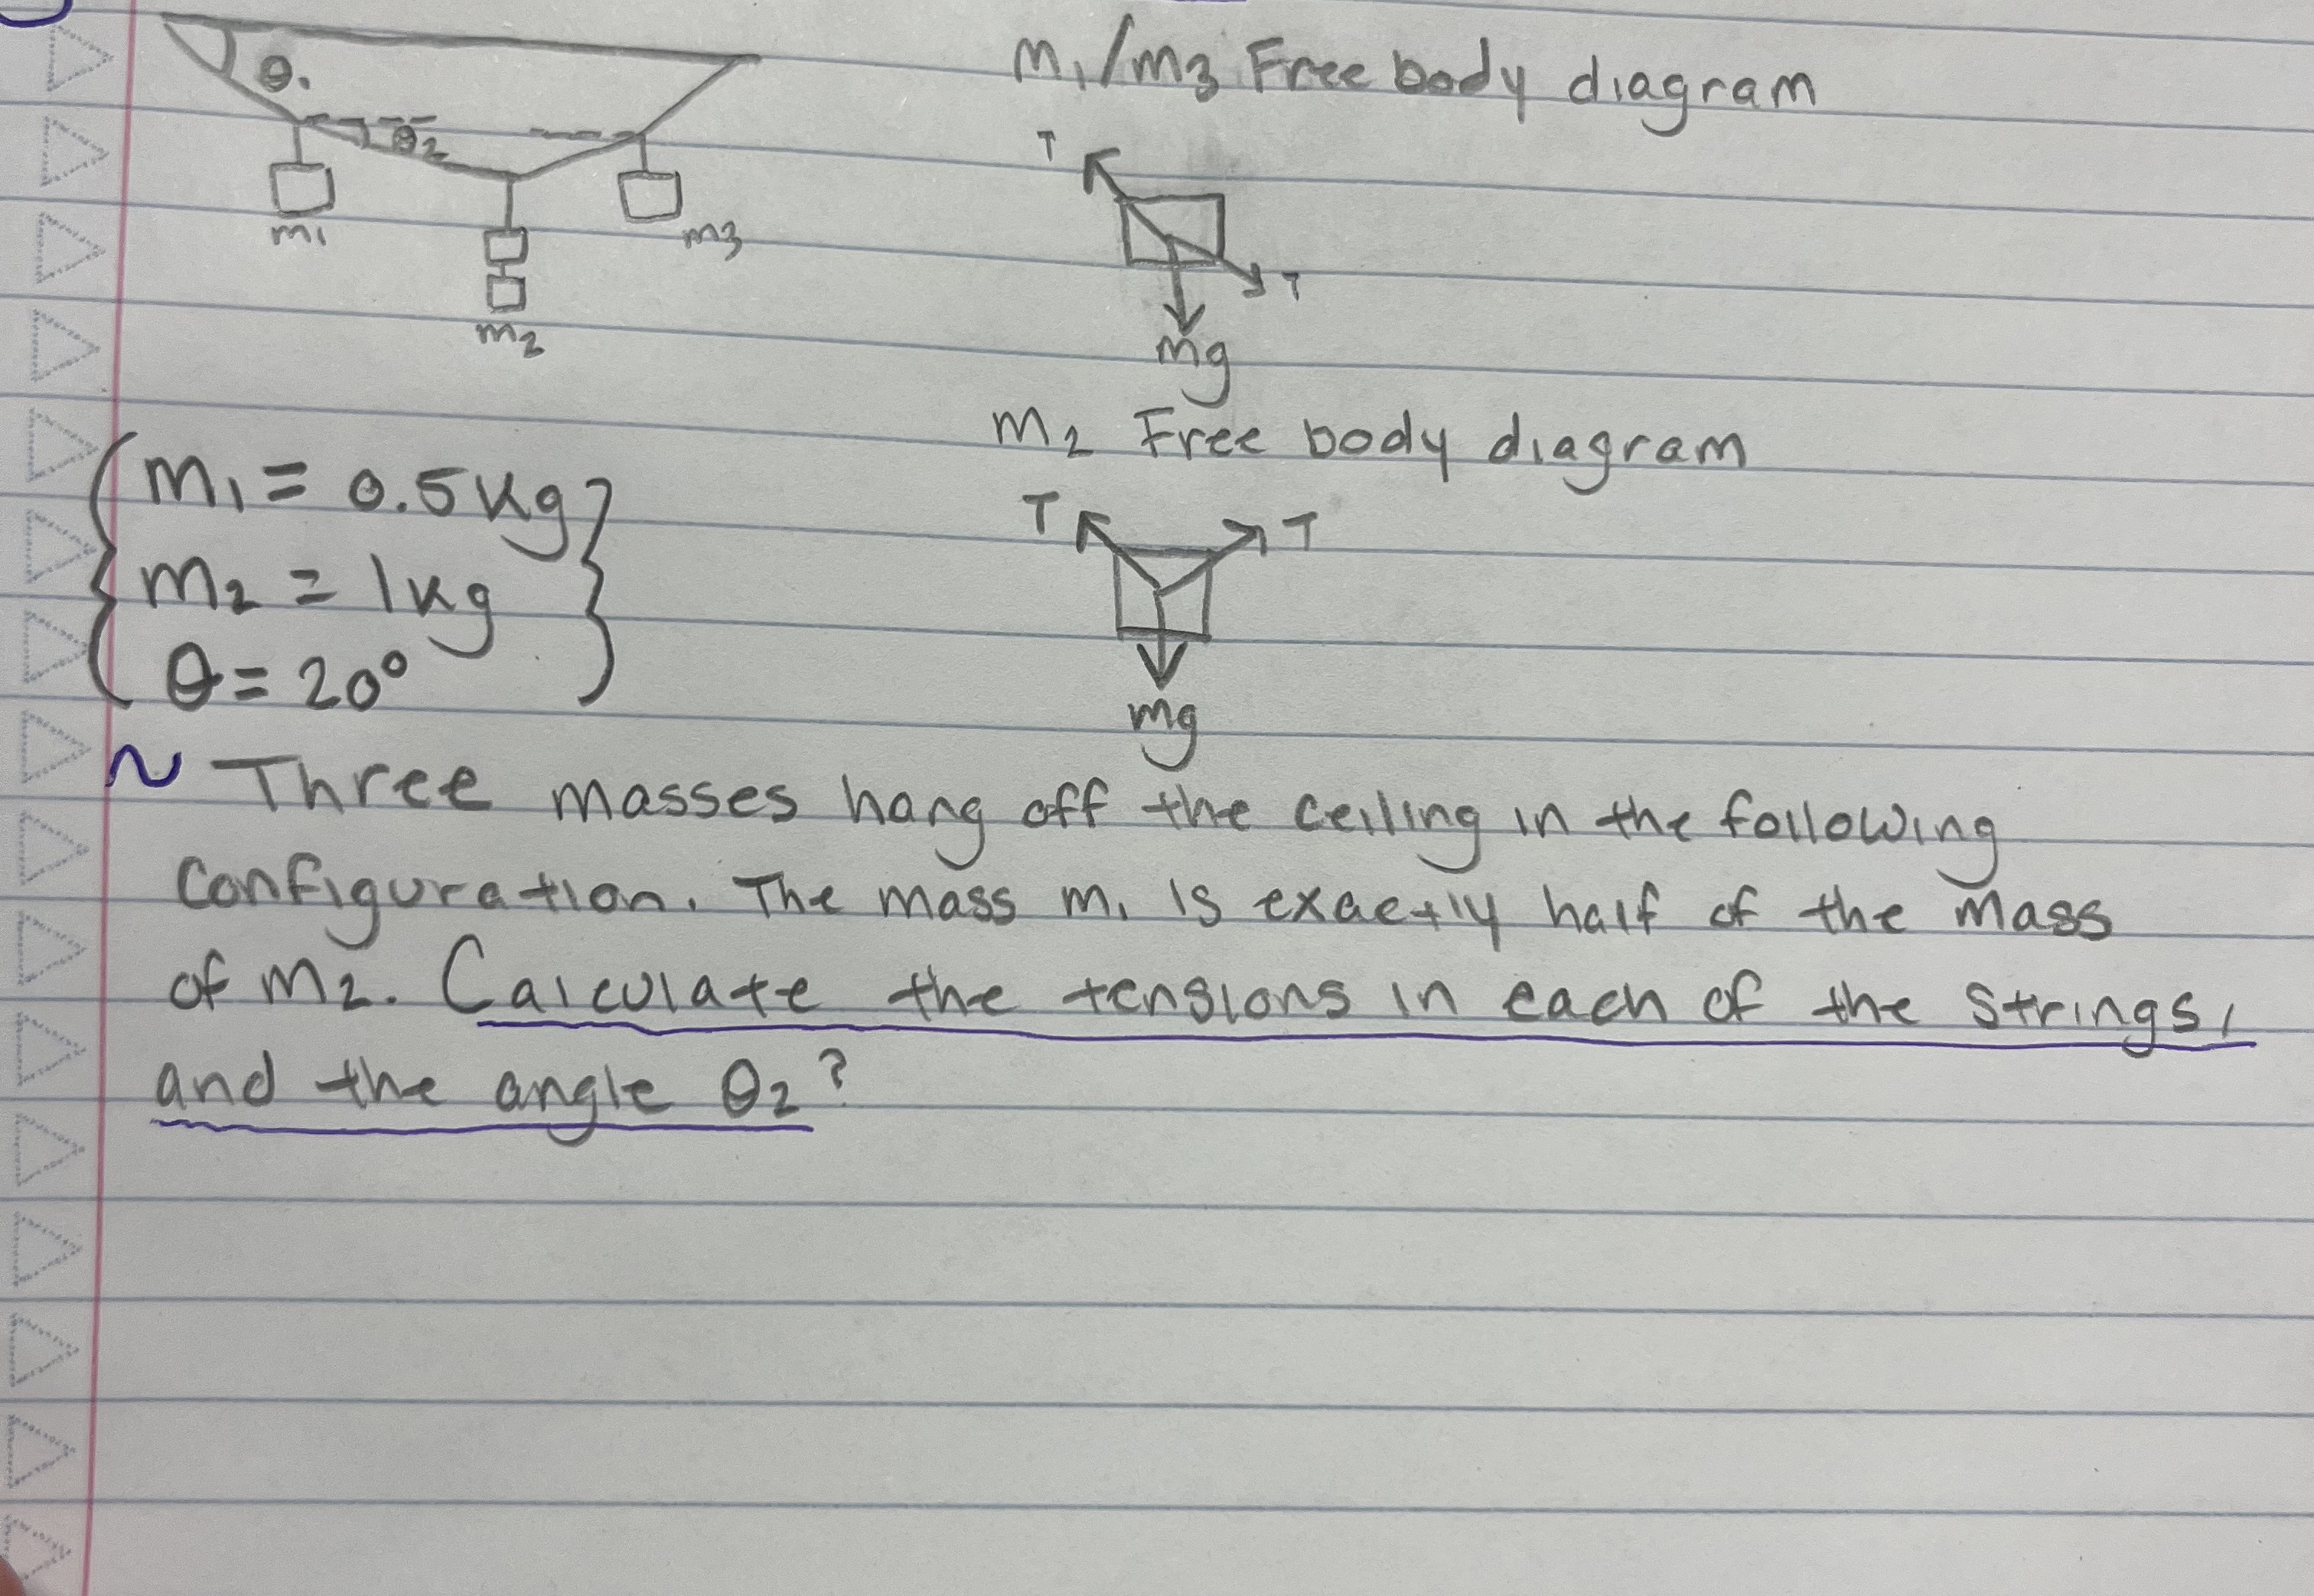 θ₁
θ₂
m₁
m₃
m₂
m₁/m₃ Free body diagram
T
T
mg
m₂ Free body diagram
T T
mg
m₁ = 0.5kg
m₂ = 1kg
θ = 20°
~ Three masses hang off the ceiling in the following
configuration. The mass m₁ is exactly half of the mass
of m₂. Calculate the tensions in each of the strings,
and the angle θ₂?